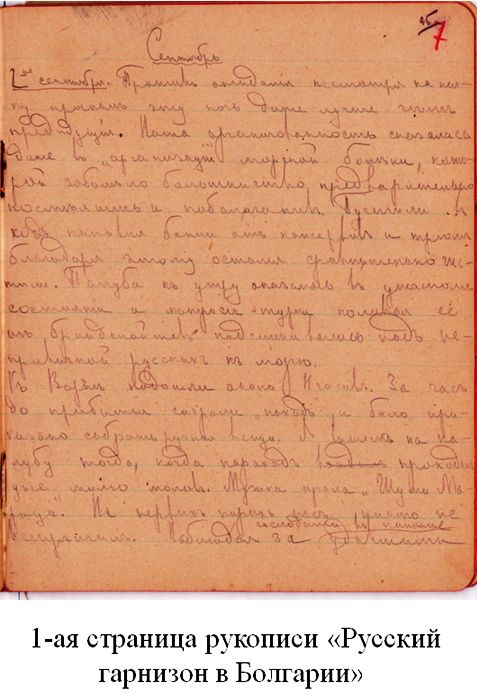 45
7
Сентябрь
2го сентября. Противъ ожиданія несмотря на кач-
ку провелъ эту ночь даже лучше чѣмъ
предидущія. Наша организованность сказалась
даже въ "организаціи" морской болѣзни, кото-
рой заболѣло большинство, предварительно
и побалагуривъ. Пустили въ
ходъ банки отъ консервовъ и трюмъ
благодаря этому остался сравнительно чи-
стымъ. Палуба къ утру оказалась въ ужасномъ
состояніи и матросы-турки поливая её
изъ брандспойтовъ подсмѣивались надъ не-
привычкой русскихъ къ морю.
Къ Варнѣ подошли около часовъ. За часъ
до прибытія сыграли "походъ" и было при-
казано собрать ручныя вещи. Я вылѣзъ на па-
лубу тогда, когда пароходъ проходилъ
уже мимо молов. Музыка играла "Шуми Ма-
рица". На первыхъ порахъ насъ никто не
встрѣчалъ. Наблюдая за
1-ая страница рукописи «Русский
гарнизон в Болгарии»